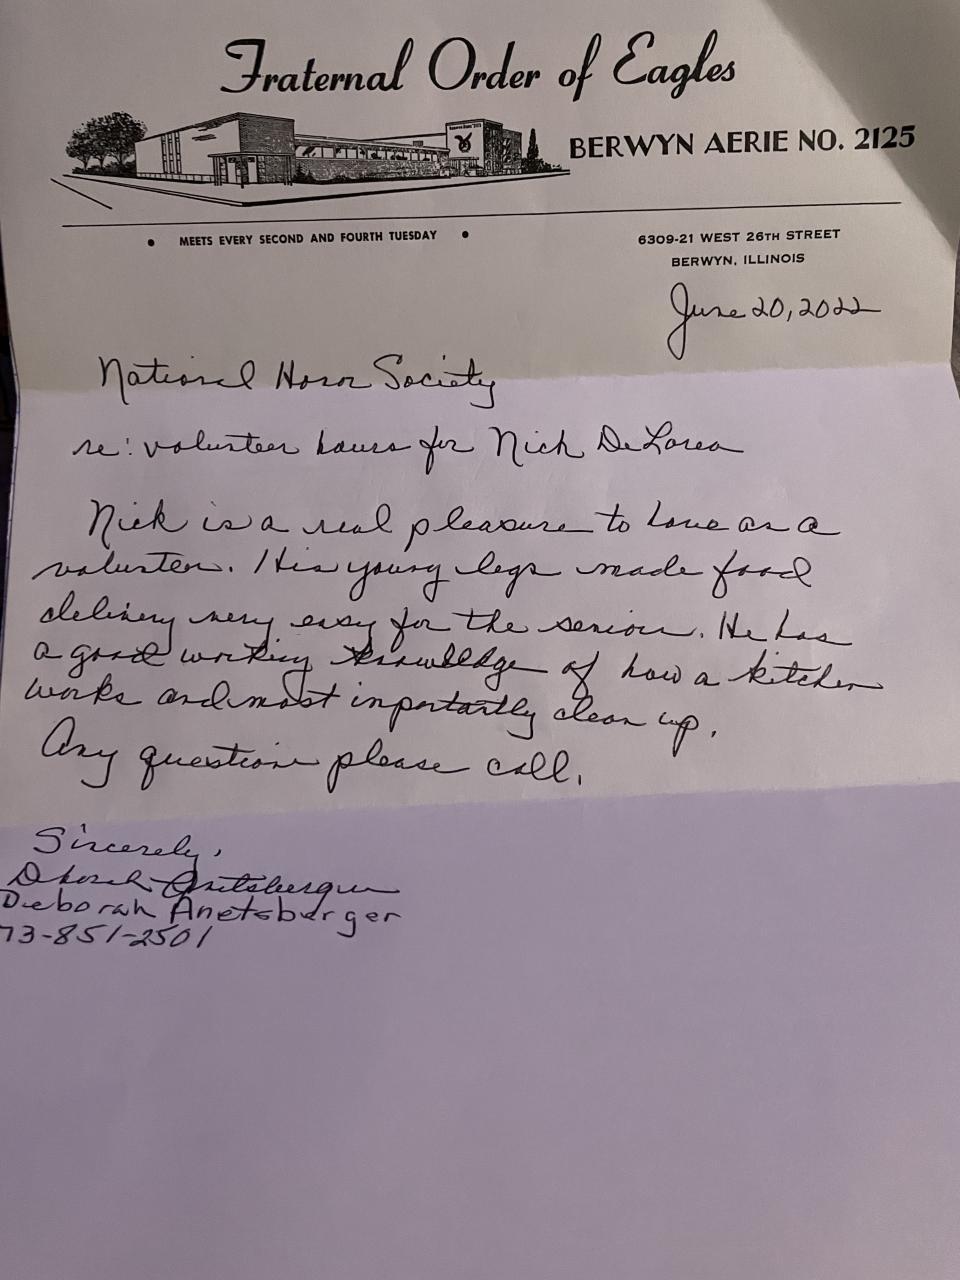 Fraternal Order of Eagles
BERWYN AERIE NO. 2125
• MEETS EVERY SECOND AND FOURTH TUESDAY •
6309-21 WEST 26TH STREET
BERWYN, ILLINOIS
June 20, 2022
National Honor Society
re: volunteer hours for Nick DeLorea
Nick is a real pleasure to have as a
volunteer. His young legs made food
delivery very easy for the seniors. He has
a good working knowledge of how a kitchen
works and most importantly clean up.
Any question please call.
Sincerely,
Deborah Anetsberger
Deborah Anetsberger
73-851-2501